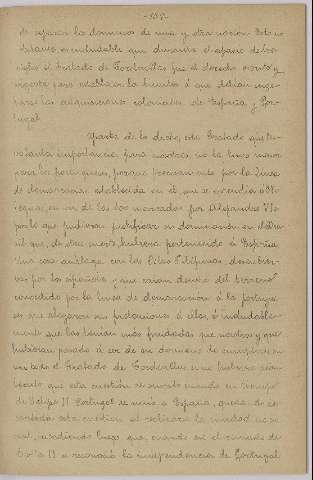 -105-
do separa los dominios de una y otra nacion. Esto no
obstante, es indudable que durante el espacio de dos
siglos el tratado de Tordesillas fue el derecho escrito y
vigente para establecer los limites á que debian suge-
tarse las adquisiciones coloniales de España y Por-
tugal.
Aparte de lo dicho, este tratado que tu-
vo tanta importancia para nosotros, no la tuvo menor
para los portugueses, porque precisamente por la linea
de demarcacion establecida en él, que se extendia á 370
leguas, en vez de las 100 marcadas por Alejandro VI es
por lo que pudieron justificar su dominacion en el Bra-
sil que, de otra suerte, hubiera pertenecido á España.
Una cosa análoga con las Islas Filipinas, descubier-
tas por los españoles y que caian dentro del terreno
concedido por la linea de demarcacion á los portugue-
ses que alegaron sus pretensiones á ellas, é indudable-
mente que las tenian mas fundadas que nosotros y que
hubieran pasado á ser de su dominio de cumplirse en
un todo el tratado de Tordesillas si no hubiera acon-
tecido que esta cuestion se suscitó cuando en tiempo
de Felipe II Portugal se unió á España, quedando
esta cuestion al realizarse la unidad nacio-
nal, sucediendo luego que, cuando en el reinado de
Carlos II se reconoció la independencia de Portugal